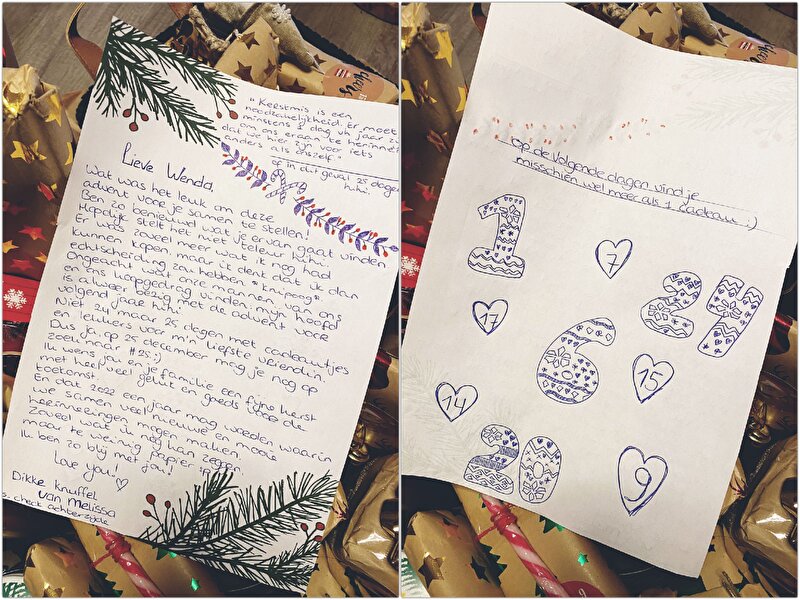 "Kerstmis is een
noodzakelijkheid. Er moet
minstens 1 dag v/h jaar zijn
om ons eraan te herinneren
dat we hier zijn voor iets
anders als onszelf."
of in dit geval 25 dagen
hihi.
Lieve Wenda,
Wat was het leuk om deze
advent voor je samen te stellen!
Ben zo benieuwd wat je ervan gaat vinden
Hopelijk stelt het niet teleur hihi
Er was zoveel meer wat ik nog had
kunnen kopen maar ik denk dat ik dan
echtscheiding zou hebben *knipoog*
Ongeacht wat onze mannen van ons
en ons koopgedrag vinden, mijn hoofd
is alweer bezig met de advent voor
volgend jaar hihi
Niet 24 maar 25 dagen met cadeautjes
en lekkers voor m'n liefste vriendin.
Dus ja, op 25 december mag je nog op
zoek naar #25:)
Ik wens jou en je familie een fijne kerst
met heel veel geluk en goeds voor de
toekomst.
En dat 2022 een jaar mag worden waarin
we samen veel nieuwe en mooie
herinneringen mogen maken.
Zoveel wat ik nog kan zeggen
maar te weinig papier
Ik ben zo blij met jou!
Love you! ♡
Dikke knuffel
van Melissa
check achterzijde
Op de volgende dagen vind je
misschien wel meer als 1 cadeau :)
1
7
24
17
6
15
14
20
9